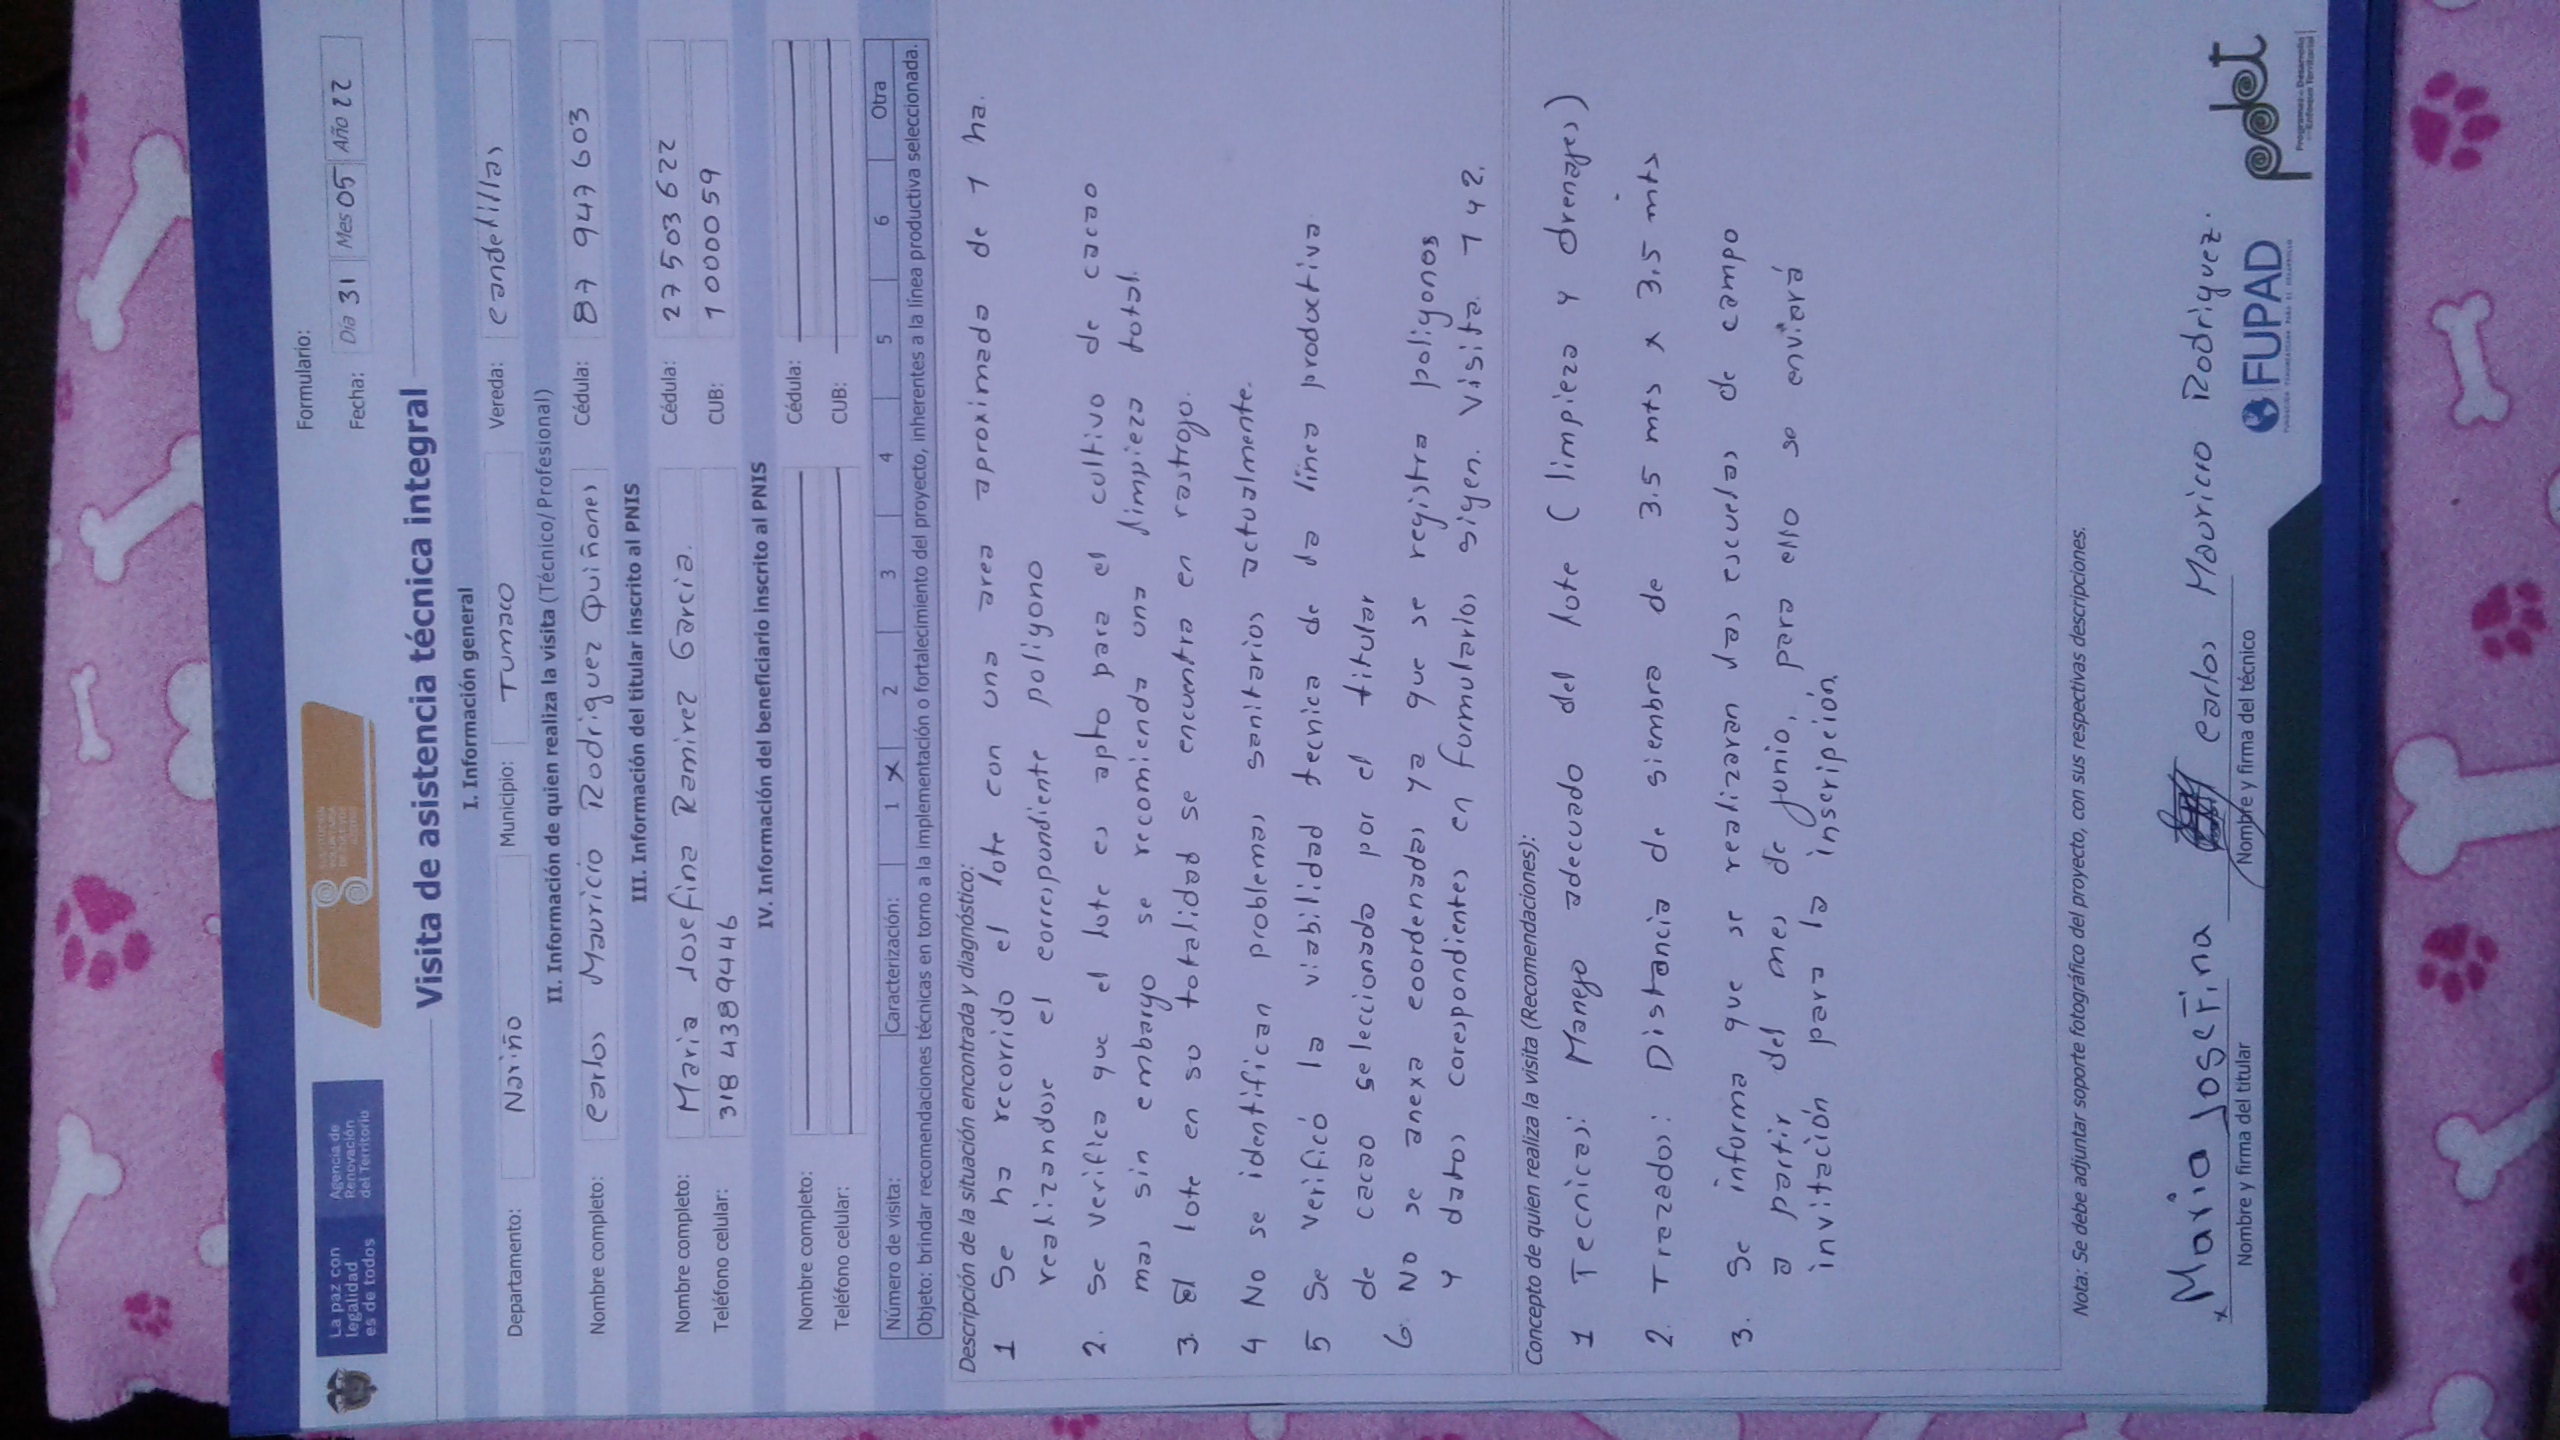 La paz con
legalidad
es de todos
Agencia de
Renovación
del Territorio
Formulario:
Fecha: Día 31 Mes 05 Año 22
Visita de asistencia técnica integral
I. Información general
Departamento: Nariño Municipio: Tumaco Vereda: candelillas
II. Información de quien realiza la visita (Técnico/Profesional)
Nombre completo: carlos Mauricio Rodriguez Quiñones Cédula: 87 947 603
III. Información del titular inscrito al PNIS
Nombre completo: Maria Josefina Ramirez Garcia. Cédula: 27 503 622
Teléfono celular: 318 4389446 CUB: 1000059
IV. Información del beneficiario inscrito al PNIS
Nombre completo: Cédula:
Teléfono celular: CUB:
Número de visita: Caracterización: 1 X 2 3 4 5 6 Otra
Objeto: brindar recomendaciones técnicas en torno a la implementación o fortalecimiento del proyecto, inherentes a la línea productiva seleccionada.
Descripción de la situación encontrada y diagnóstico:
1 Se ha recorrido el lote con una area aproximada de 1 ha.
realizandose el correspondiente poligono
2. Se verifica que el lote es apto para el cultivo de cacao
mas sin embargo se recomienda una limpieza total.
3. El lote en su totalidad se encuentra en rastrojo.
4 No se identifican problemas sanitarios actualmente.
5 Se verificó la viabilidad tecnica de la línea productiva
de cacao seleccionada por el titular
6. No se anexa coordenadas ya que se registra poligonos
y datos corespondientes en formularios sigen. Visita. 1 y 2.
Concepto de quien realiza la visita (Recomendaciones):
1 Tecnicas: Manejo adecuado del lote (limpieza y drenajes)
2. Trazados: Distancia de siembra de 3.5 mts x 3.5 mts
3. Se informa que se realizaran las escuelas de campo
a partir del mes de junio, para ello se enviará
invitación para la inscripción.
Nota: Se debe adjuntar soporte fotográfico del proyecto, con sus respectivas descripciones.
x Maria JoseFina
carlos Mauricio Rodriguez.
Nombre y firma del titular
Nombre y firma del técnico
FUPAD
pdet
Programas de Desarrollo
con Enfoque Territorial